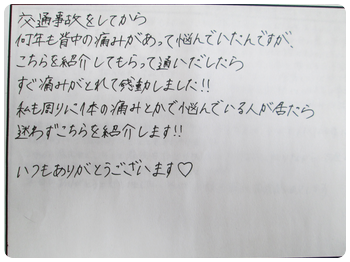 交通事故をしてから
何年も背中の痛みがあって悩んでいたんですが、
こちらを紹介してもらって通いだしたら
すぐ痛みがとれて感動しました!!
私も周りに体の痛みとかで悩んでいる人が居たら
迷わずこちらを紹介します!!
いつもありがとうございます♡